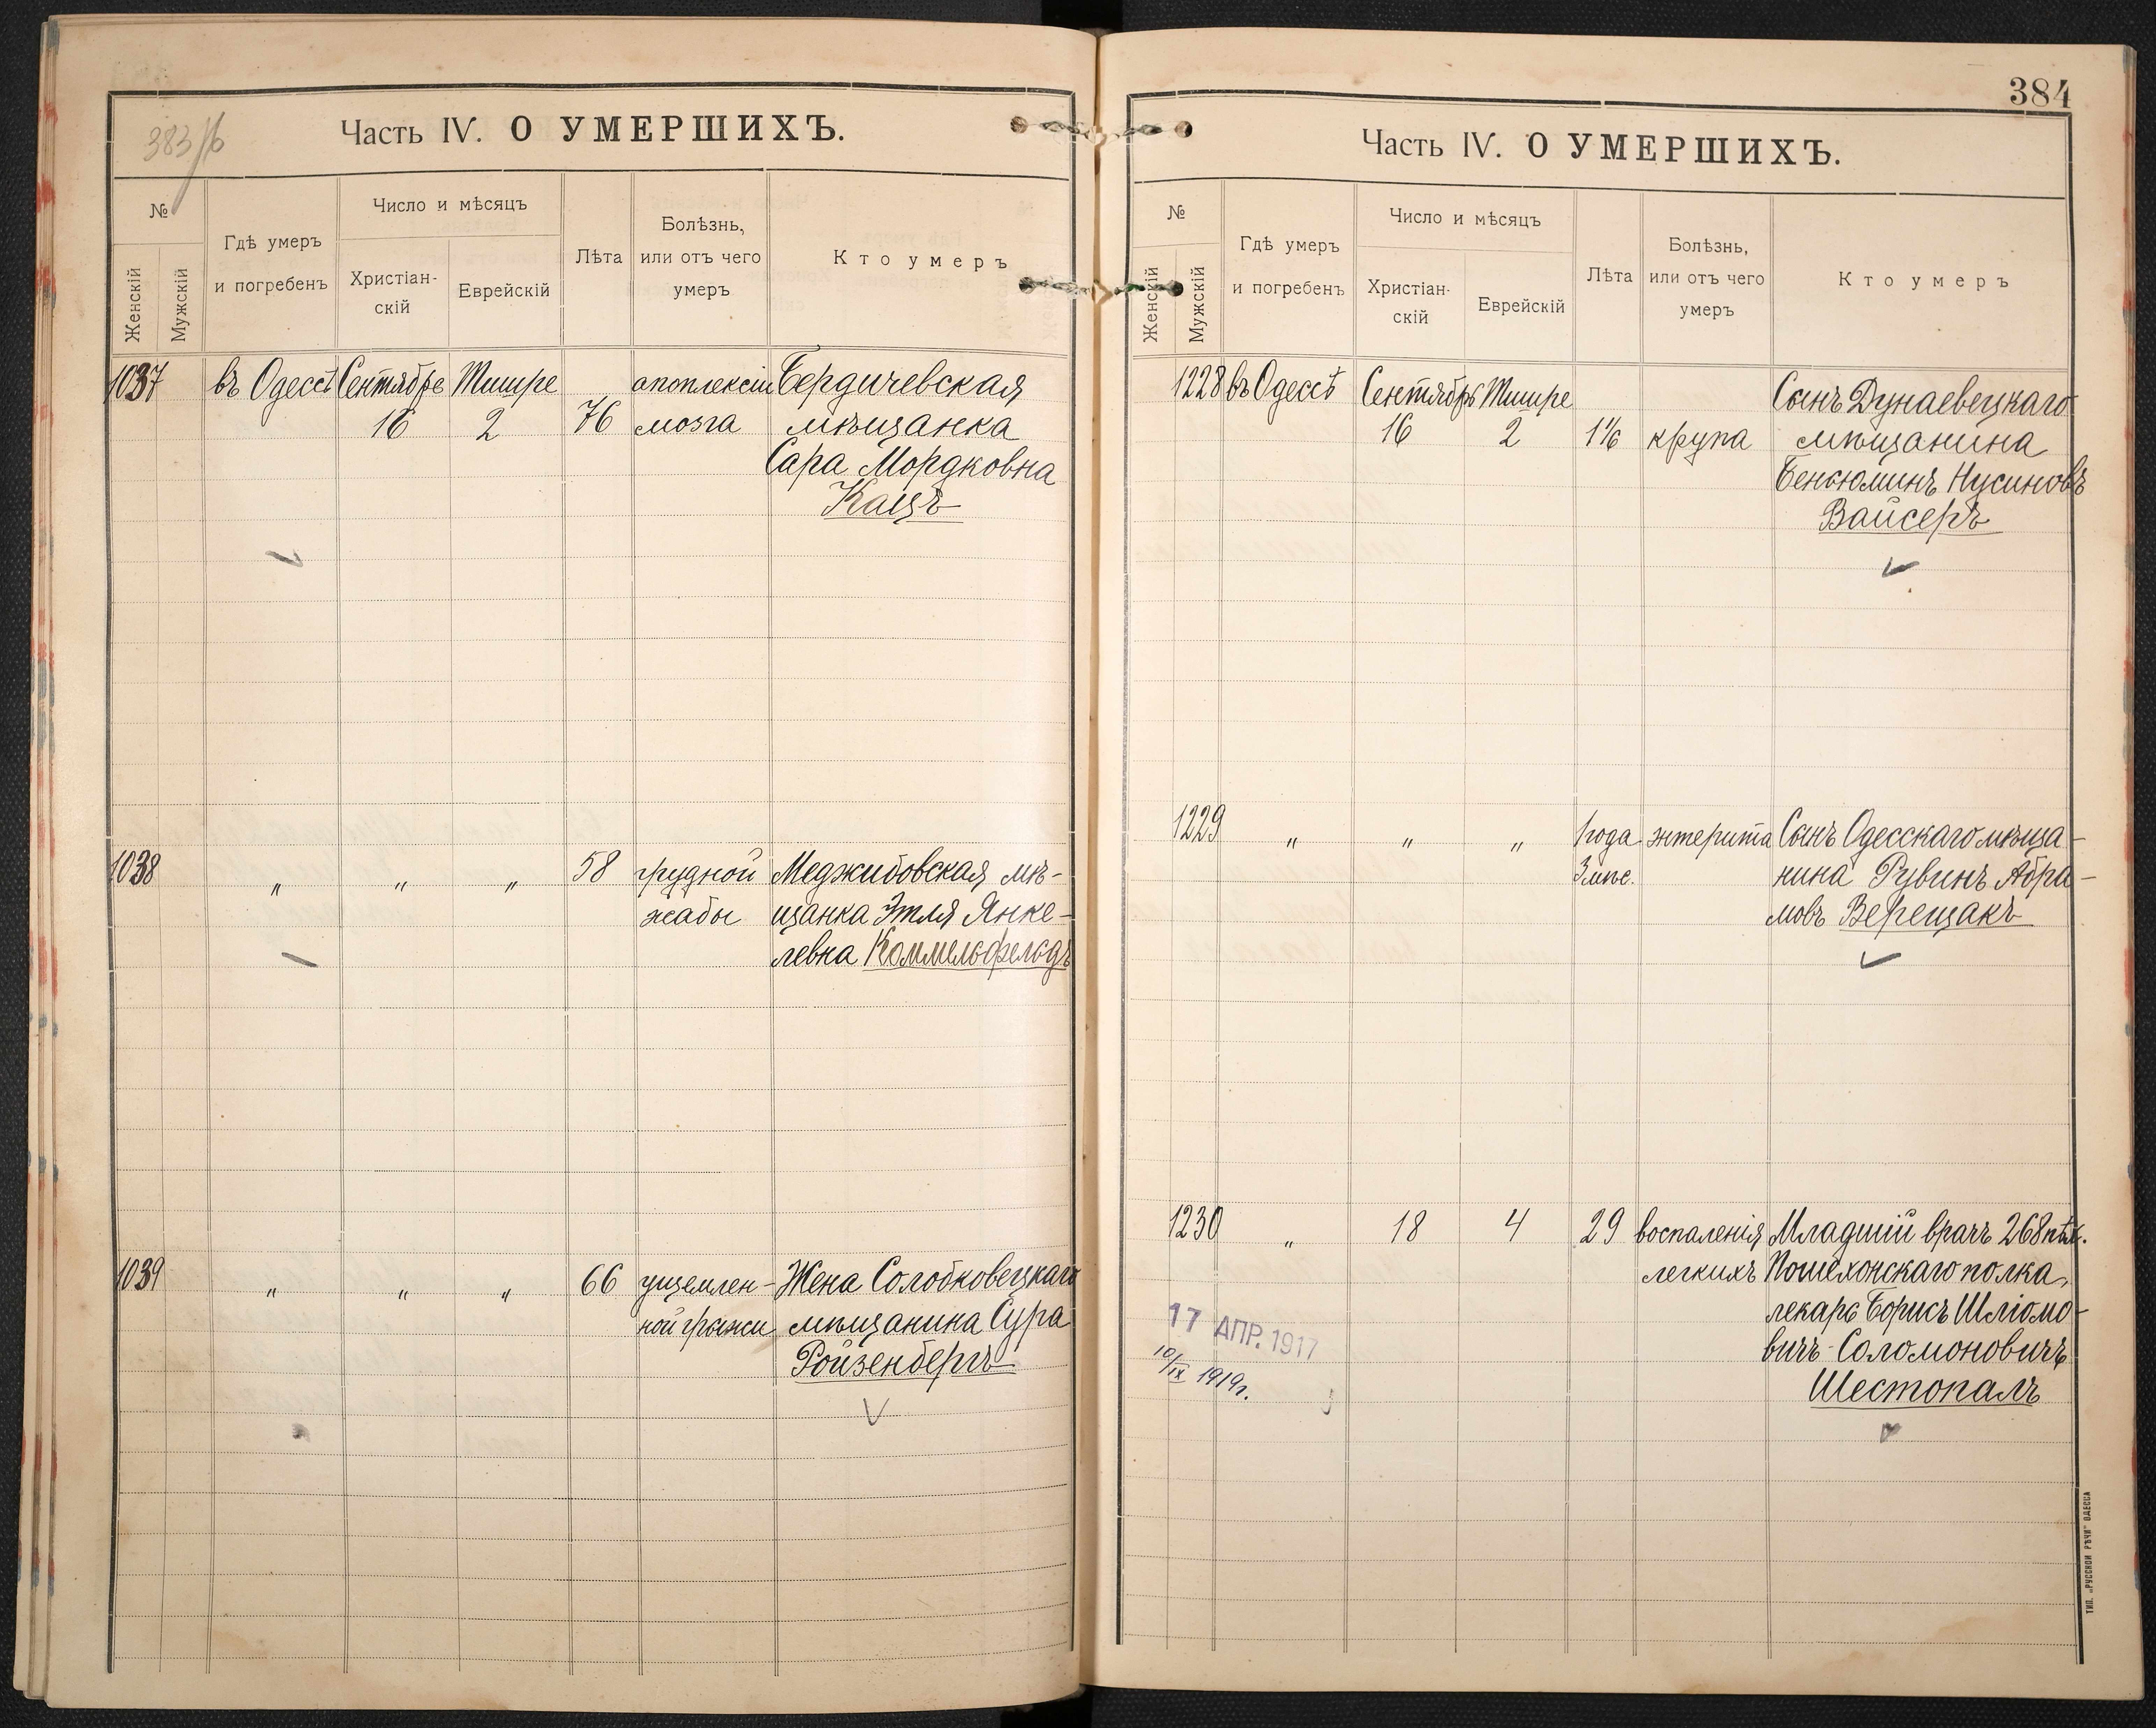 383/б
Часть IV. О УМЕРШИХЪ.
№
Женскій
Мужскій
Гдѣ умеръ
и погребенъ
Число и мѣсяцъ
Христіан-
скій
Еврейскій
Лѣта
Болѣзнь,
или отъ чего
умеръ
Кто умеръ
1037 въ Одессѣ Сентябрь Тишре апоплексіи Бердичевская
16 2 76 мозга мѣщанка
Сара Мордковна
Кацъ
1038 " " " 58 грудной Меджибовская мѣ-
жабы щанка Этля Янке-
левна Коммельфельдъ
1039 " " " 66 ущемлен- Жена Солобковецкаго
ной грыжи мѣщанина Сура
Ройзенбергъ
384
Часть IV. О УМЕРШИХЪ.
№
Женскій
Мужскій
Гдѣ умеръ
и погребенъ
Число и мѣсяцъ
Христіан-
скій
Еврейскій
Лѣта
Болѣзнь,
или отъ чего
умеръ
Кто умеръ
1228 въ Одессѣ Сентябрь Тишре Сынъ Дунаевецкаго
16 2 1 1/6 крупа мѣщанина
Беньюминъ Нусиновъ
Вайсеръ
1229 " " " 1 года энтерита Сынъ Одесскаго мѣща-
3 мѣс. нина Рувинъ Абра-
мовъ Верещакъ
1230 " 18 4 29 воспаленія Младшій врачъ 268 пѣх.
легкихъ Пошехонскаго полка,
лекарь Борисъ Шліомо-
вичъ-Соломоновичъ
Шестопалъ
17 АПР. 1917
10/IX 1919г.
ТИП. „РУССКОЙ РѢЧИ" ОДЕССА